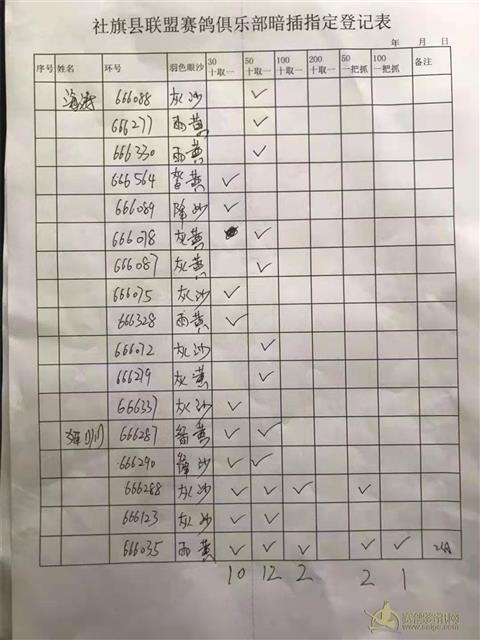 社旗县联盟赛鸽俱乐部暗插指定登记表
年 月 日
序号 姓名 环号 羽色眼沙 30十取一 50十取一 100十取一 200十取一 50一把抓 100一把抓 备注
666088 灰沙 ✓
666277 雨黄 ✓
666330 雨黄 ✓
666564 黄 ✓
666089 沙 ✓
666078 灰黄 ✓
666087 灰黄 ✓
666075 灰沙 ✓
666328 雨黄 ✓
666072 灰沙 ✓
666279 灰黄 ✓
666337 灰沙 ✓
666287 黄 ✓ ✓
666290 沙 ✓ ✓
666288 灰沙 ✓ ✓ ✓ ✓
666123 灰沙 ✓ ✓
666035 雨黄 ✓ ✓ ✓ ✓ ✓
10 12 2 2 1
赛鸽资讯网